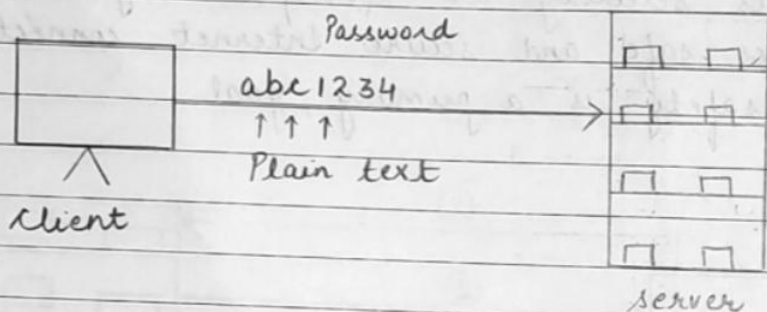 Password
abc1234
↑ ↑ ↑
Plain text
Client
server